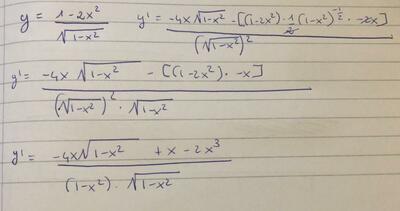 y = (1-2x²)/√(1-x²)    y' = (-4x√(1-x²) - [(1-2x²)·1/2(1-x²)^(-1/2)·-2x])/(√(1-x²))²
y' = (-4x √(1-x²) - [(1-2x²)·-x])/((√(1-x²))²·√(1-x²))
y' = (-4x√(1-x²) + x - 2x³)/((1-x²)·√(1-x²))